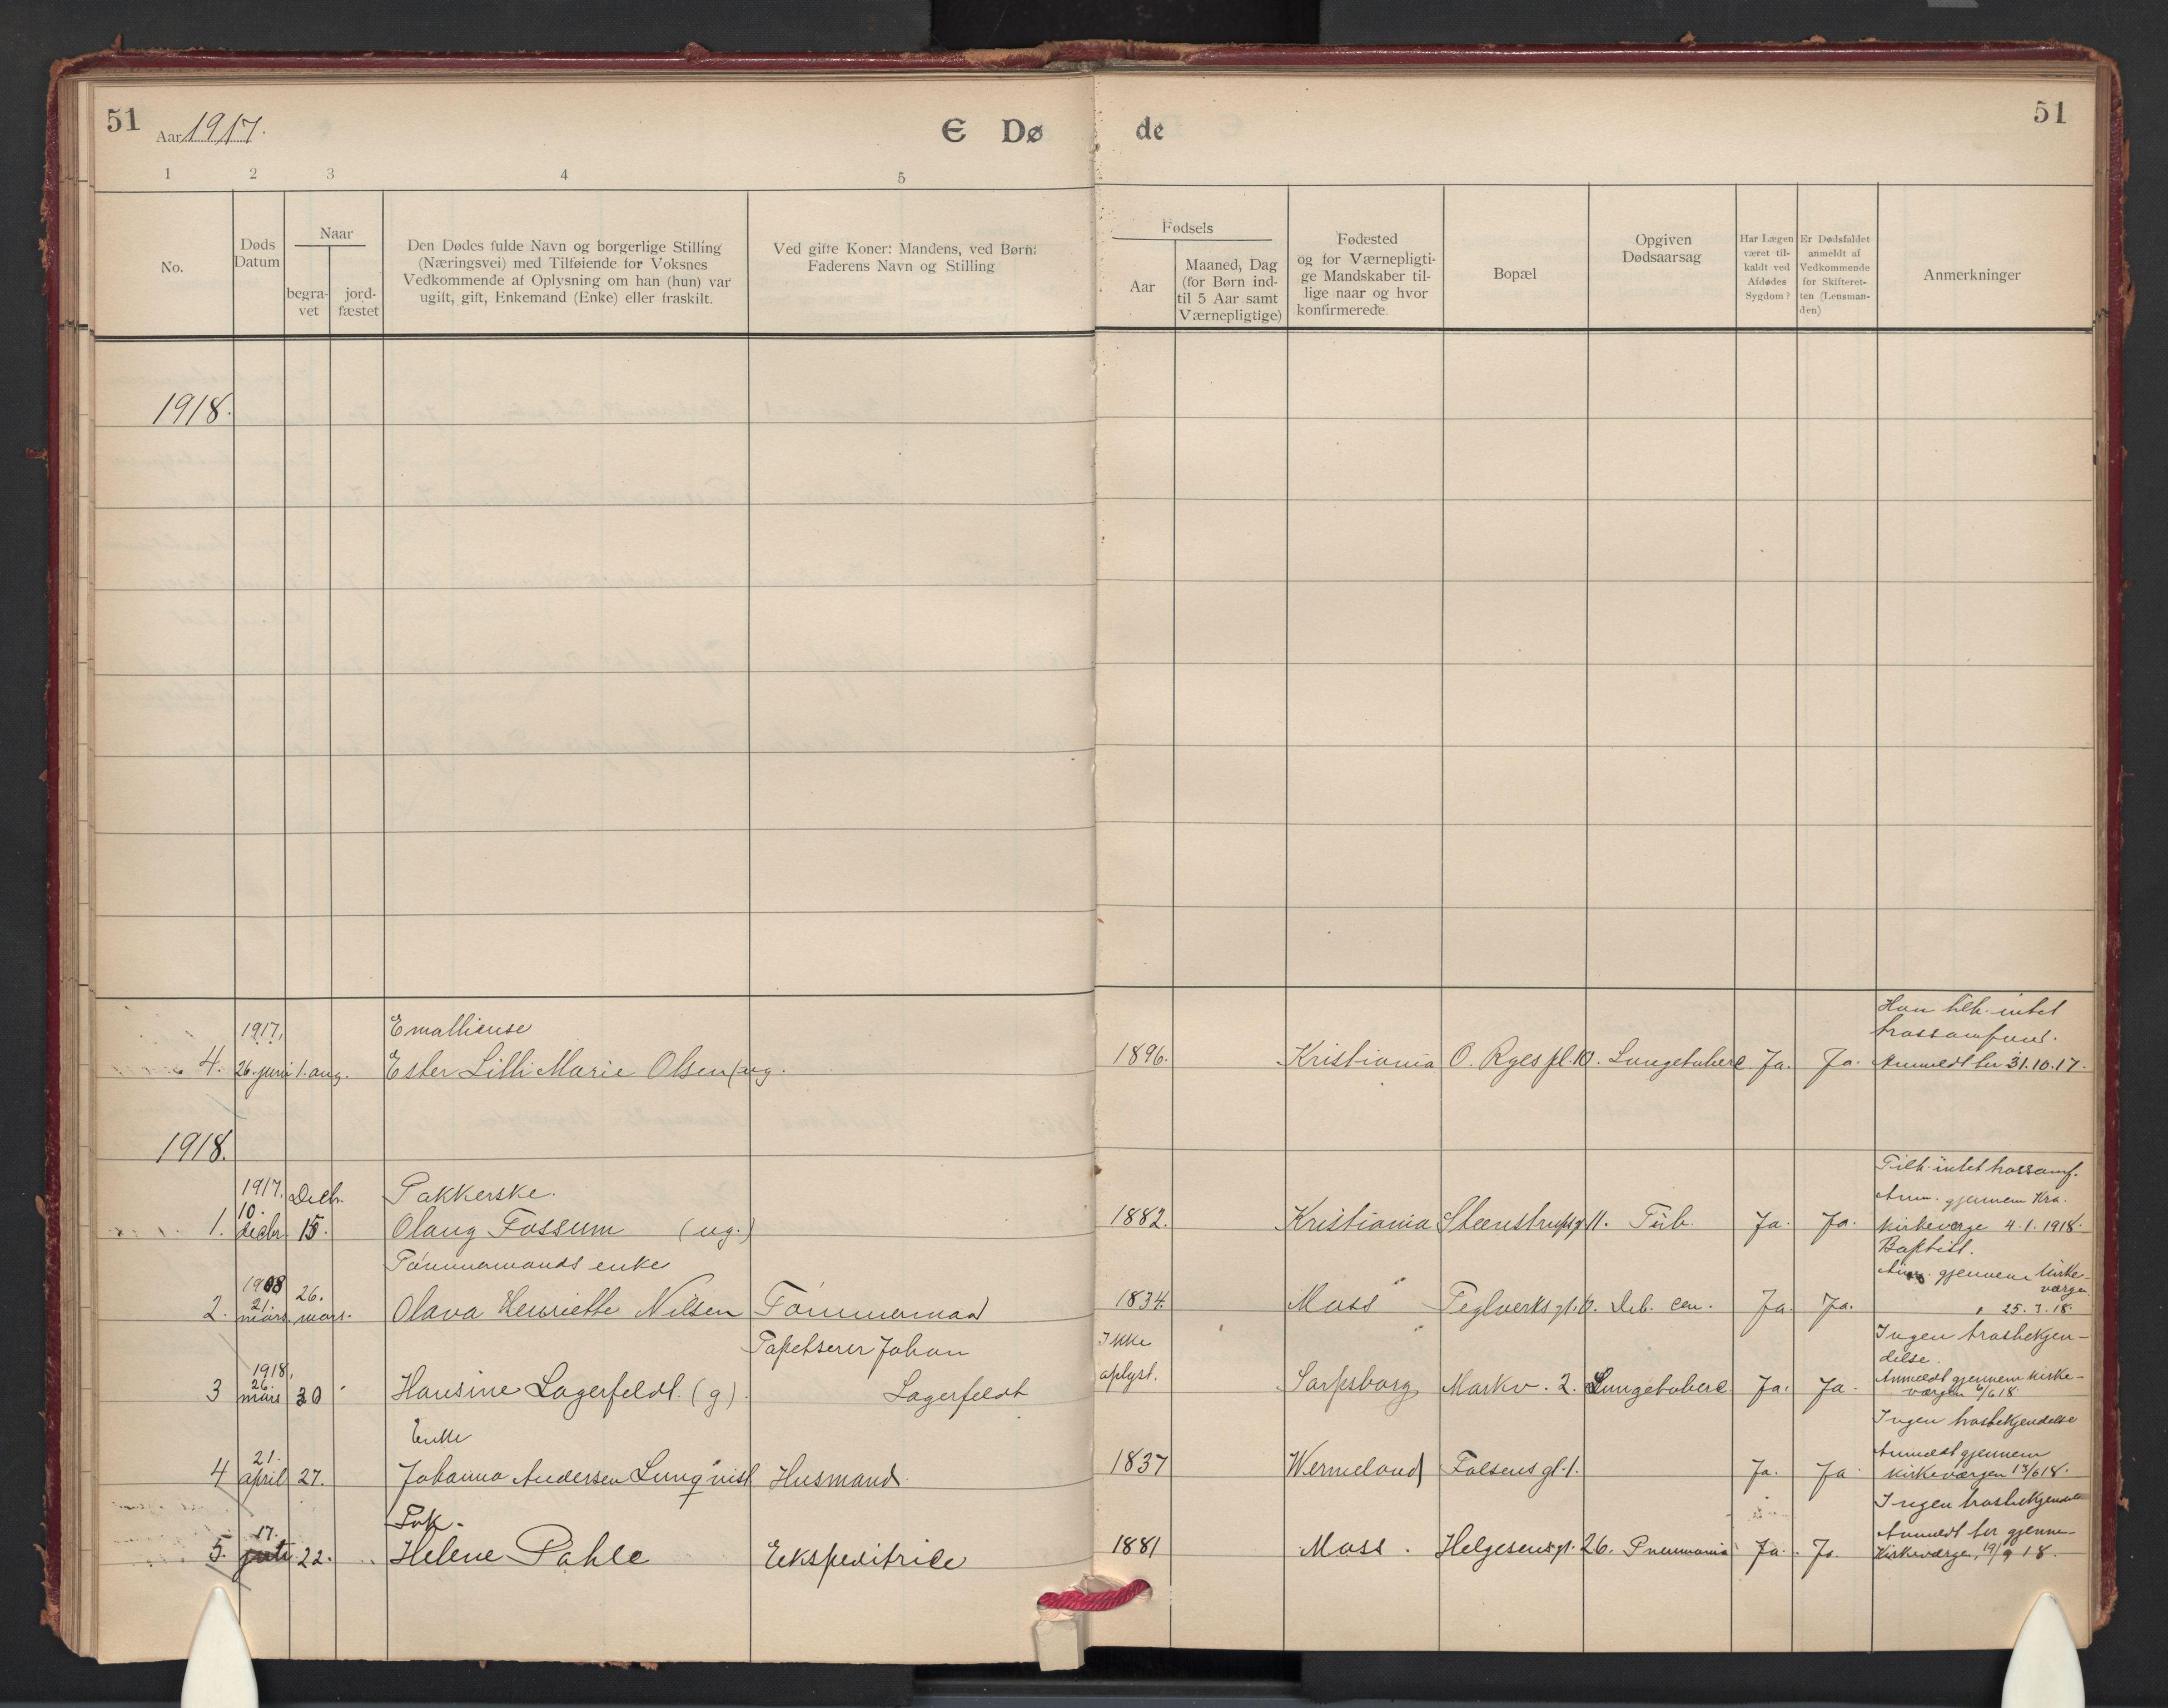 51 Aar 1917. E Dø de 51
1 2 3 4 5
No.
Døds Datum
Naar
begra-vet
jord-fæstet
Den Dødes fulde Navn og borgerlige Stilling
(Næringsvei) med Tilføiende for Voksnes
Vedkommende af Oplysning om han (hun) var
ugift, gift, Enkemand (Enke) eller fraskilt.
Ved gifte Koner: Mandens, ved Børn:
Faderens Navn og Stilling
Fødsels
Aar
Maaned, Dag
(for Børn ind-
til 5 Aar samt
Værnepligtige)
Fødested
og for Værnepligti-
ge Mandskaber til-
lige naar og hvor
konfirmerede.
Bopæl
Opgiven
Dødsaarsag
Har Lægen
været til-
kaldt ved
Afdødes
Sygdom?
Er Dødsfaldet
anmeldt af
Vedkommende
for Skifteret-
ten (Lensman-
den)
Anmerkninger
1918.
1917. Emallieuse Hun tilh. intet
trossamfund.
4. 26. juni 1. aug. Ester Lilli Marie Olsen (ug. 1896. Kristiania O. Ryes pl. 10. Lungetuberc. Ja. Ja. Anmeldt her 31.10.17.
1918.
1917. Decbr. Pakkerske. Tilh. intet trossamf.
10. Anm. gjennem Kra.
1. decbr. 15. Olaug Fossum (ug.) 1882. Kristiania Steenstrupsg. 11. Tub. Ja. Ja. kirkeverge 4.1.1918.
Tømmermands enke Baptist.
1918 26. Anm. gjennem kirke-
værgen
2. 21. mars. mars. Olava Henriette Nilsen Tømmermand 1834. Moss Teglverksgt. 6. Deb. cen. Ja. Ja. 25.3.18.
Tapetserer Johan Ikke Ingen trosbekjen-
delse.
1918, 26. oplyst. Anmeldt gjennem kirke-
3 mars 30 Hansine Lagerfeldt. (g) Lagerfeldt Sarpsborg Markv. 2. Lungetuberc. Ja. Ja. værgen 6/6 18
Enke Ingen trosbekjendelse
21. Anmeldt gjennem
4 april 27. Johanna Andersen Lunqvist Husmand. 1837 Wermeland Falsens gt. 1. Ja. Ja. kirkeværgen 13/6 18.
Frk. Ingen trosbekjendelse
17. Anmeldt her gjennem
5. juli 22. Helene Pahle Ekspeditrice 1881 Moss. Helgesensgt. 26. Pneumonia Ja. Ja. Kirkeværgen, 19/9 18.